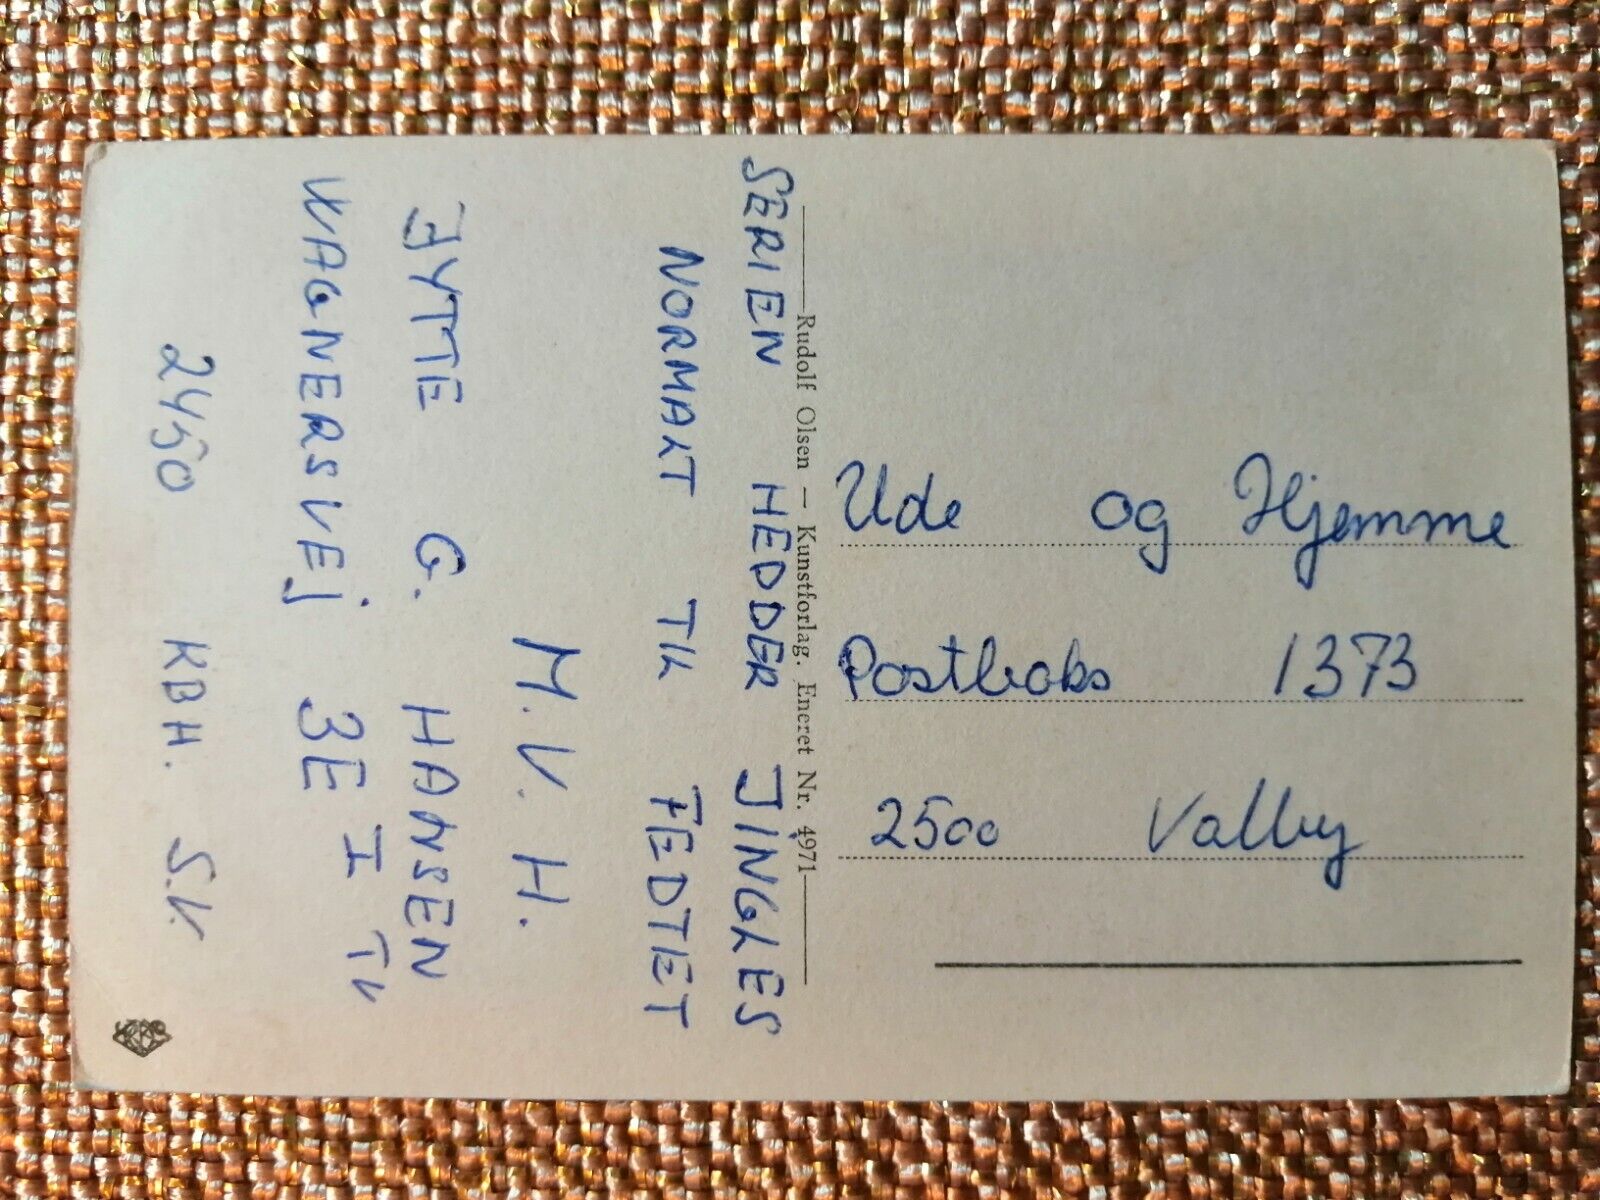 SERIEN HEDDER JINGLES
NORMALT TIL FEDTET
M.V.H.
JYTTE G. HANSEN
WAGNERSVEJ 3E I TV
2450 KBH. S.V.
Rudolf Olsen – Kunstforlag. Eneret Nr. 4971
Ude og Hjemme
Postboks 1373
2500 Valby